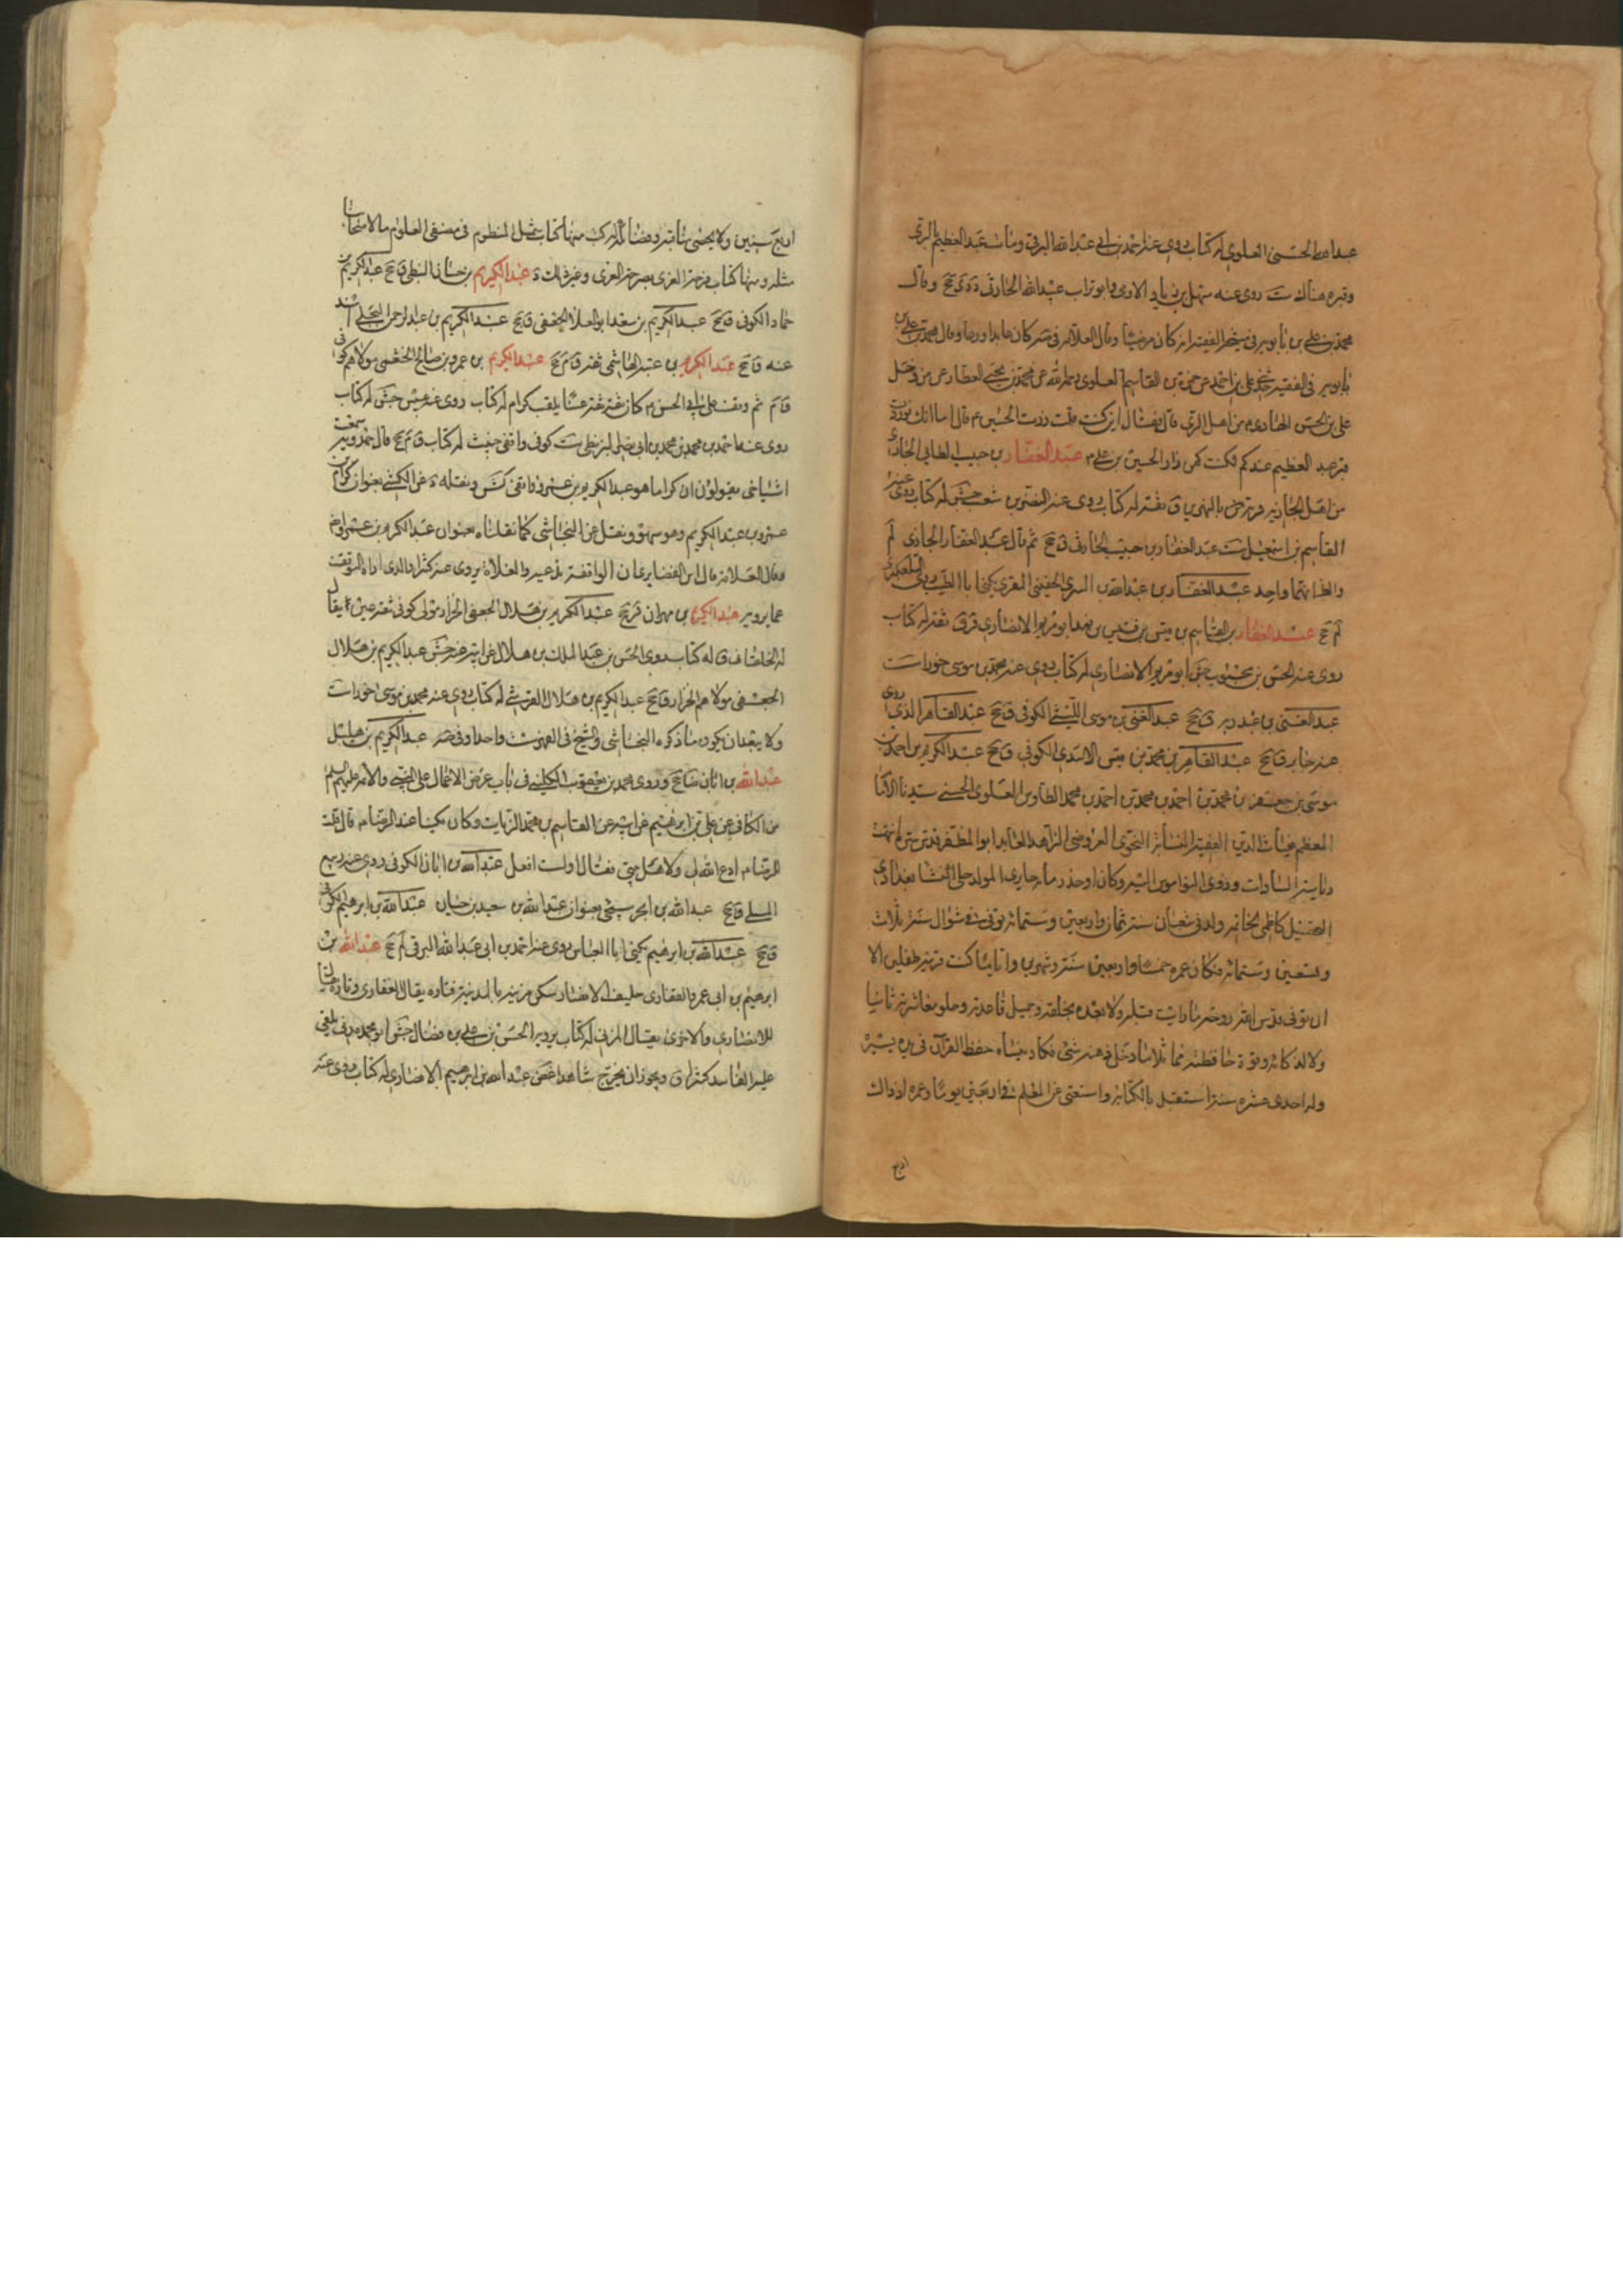 عبد الله الحسني العلوي له كتاب روى عنه احمد بن ابي عبد الله البرقي ومات عبد العظيم بالري
وقبره هناك ست روى عنه سهل بن زياد الادمي وابو تراب عبيد الله الحارثي وقال
محمد بن علي بن بابويه في الفقيه انه كان مرضيا وقال العلامة في صه كان عابدا ورعا وقال محمد بن علي بن
بابويه في الفقيه علي بن احمد عن حمزة بن القاسم العلوي رحمه الله عن محمد بن يحيى العطار عمن دخل
علي بن الحسن الهادي م من اهل الري قال فقال اين كنت قلت زرت الحسين م قال اما انك لو زرت
قبر عبد العظيم عندكم لكنت كمن زار الحسين بن علي م عبد الغفار بن حبيب الطائي الجازي
من اهل الجازية قرية بالنهروان ثقة له كتاب روى عنه النضر بن شعيب جش له كتاب روى عنه
القاسم بن اسمعيل ست عبد الغفار بن حبيب الحارثي ق جخ ثم قال عبد الغفار الجازي لم
والظاهر انهما واحد عبد الغفار بن عبد الله بن السري الحضيني المقري يكنى ابا الطيب روى عنه التلعكبري
لم جخ عبد الغفار بن القاسم بن قيس بن قيس بن فهد ابو مريم الانصاري ق ر ق ثقة له كتاب
روى عنه الحسن بن محبوب جش ابو مريم الانصاري له كتاب روى عنه محمد بن موسى خوراء ست
عبد الغني بن عبد ربه ق جخ عبد الغني بن موسى الليثي الكوفي ق جخ عبد القاهر الذي روى
عنه جابر ق جخ عبد القاهر بن محمد بن قيس الاسدي الكوفي ق جخ عبد الكريم بن احمد بن
موسى بن جعفر بن محمد بن احمد بن محمد بن احمد بن محمد الطاوس العلوي الحسني سيدنا الامام
المعظم غياث الدين الفقيه النسابة النحوي العروضي الزاهد العابد ابو المظفر قدس سره انتهت
رياسة السادات وذوي النواميس اليه وكان اوحد زمانه حايري المولد حلي المنشأ بغدادي
التحصيل كاظمي الخاتمة ولد في شعبان سنة ثمان واربعين وستمائة توفي في شوال سنة ثلاث
وتسعين وستمائة فكان عمره خمسا واربعين سنة وشهرين واياما كنت قرينه طفلين الا
ان توفي قدس الله روحه ما رايت قبله ولا بعده بخلقه وجميل قاعدته وحلو معاشرته ثانيا
ولا لذكائه وقوة حافظته مماثلا ما دخل في ذهنه شئ فكاد ينساه حفظ القرآن في مدة يسيرة
وله احدى عشرة سنة استقل بالكتابة واستغنى عن المعلم في اربعين يوما وعمره اذ ذاك
اربع
اربع سنين ولا يحصى مناقبه وفضائله له كتب منها كتاب شمل المنظوم في مصنفي العلوم ما لاصحابنا
مثله ومنها كتاب فرحة الغري بصرحة الغري وغير ذلك د عبد الكريم بن حسان النبطي ق جخ عبد الكريم بن
حماد الكوفي ق جخ عبد الكريم بن سعد ابو العلا الجعفي ق جخ عبد الكريم بن عبد الرحمن البجلي اسند
عنه ق جخ عبد الكريم بن عتبة الهاشمي ثقة ق م جخ عبد الكريم بن عمرو بن صالح الخثعمي مولاهم كوفي
ق م ثم وقف على ابي الحسن م كان ثقة ثقة عينا يلقب كرام له كتاب روى عنه عبيس جش له كتاب
روى عنه احمد بن محمد بن محمد بن ابي نصر البزنطي ست كوفي واقفي خبيث له كتاب ق م جخ قال حمدويه سمعت
اشياخي يقولون ان كراما هو عبد الكريم بن عمرو واقفي كش ونقله د عن الكشي بعنوان كرام بن
عمرو بن عبد الكريم وهو سهو ونقل عن النجاشي كما نقلناه بعنوان عبد الكريم بن عمرو ايضا
وقال العلامة قال ابن الغضايري ان الواقفة تدعيه والغلاة يروى عنه كثيرا والذي اراه التوقف
عما يرويه عبد الكريم بن مهران ق ر جخ عبد الكريم بن هلال الجعفي الخزاز مولى كوفي ثقة عين يقال
له الخلقاني ق له كتاب روى الحسن بن عبد الملك بن هلال عن ابيه عنه جش عبد الكريم بن هلال
الجعفي مولاهم الخزاز ق جخ عبد الكريم بن هلال القرشي له كتاب روى عنه محمد بن موسى خوراء ست
ولا يبعد ان يكون ما ذكره النجاشي والشيخ في الفهرست واحدا عبد الكريم بن هليل
عبد الله بن ابان ضا جخ وروى محمد بن يعقوب الكليني في باب عرض الاعمال على النبي والائمة عليهم السلم
من الكافي عن علي بن ابرهيم عن ابيه عن القاسم بن محمد الزيات وكان مكينا عند الرضا م قال قلت
للرضا م ادع الله لي ولاهل بيتي فقال اولست افعل عبد الله بن ابان الكوفي روى عنه ربيع
المسلي ق جخ عبد الله بن ابجر سيجئ بعنوان عبد الله بن سعيد بن حيان عبد الله بن ابرهيم الكوفي
ق جخ عبد الله بن ابرهيم يكنى ابا العباس روى عنه احمد بن ابي عبد الله البرقي لم جخ عبد الله بن
ابرهيم بن ابي عمرو الغفاري حليف الانصار سكن مزينة بالمدينة فتارة يقال الغفاري وتارة يقال
الانصاري والاخرى يقال المزني له كتاب يرويه الحسن بن علي بن فضال جش ابو محمد مدني يلقى
عليه الفاسد كثيرا ق ويجوز ان يخرج شاهدا غض عبد الله بن ابرهيم الانصاري له كتاب روى عنه